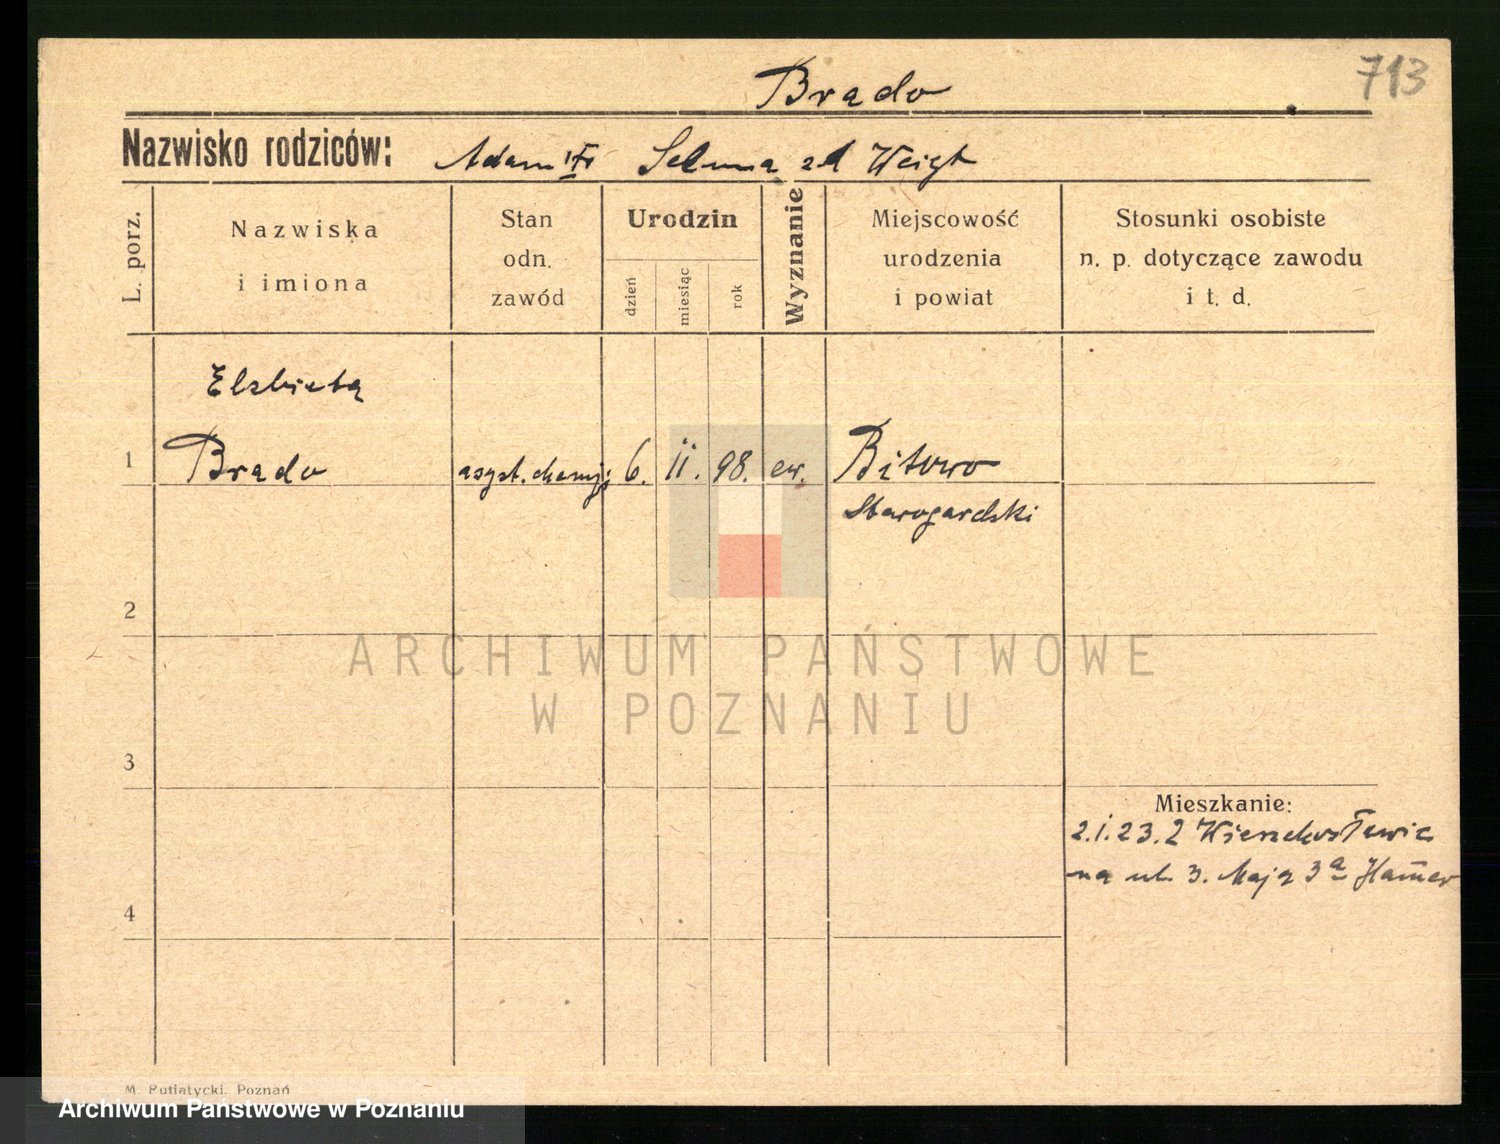 Brado
713
Nazwisko rodziców: Adam Selma zd Weigt
L. porz.
Nazwiska
i imiona
Stan
odn.
zawód
Urodzin
dzień
miesiąc
rok
Wyznanie
Miejscowość
urodzenia
i powiat
Stosunki osobiste
n. p. dotyczące zawodu
i t. d.
Elzbieta
1 Brado asyst. chemji 6. II. 98. ew.
Starogardski
2
ARCHIWUM PAŃSTWOWE
W POZNANIU
3
Mieszkanie:
2.I.23. Z
na ul. 3. Maja 3a
4
M. Putiatycki. Poznań
Archiwum Państwowe w Poznaniu